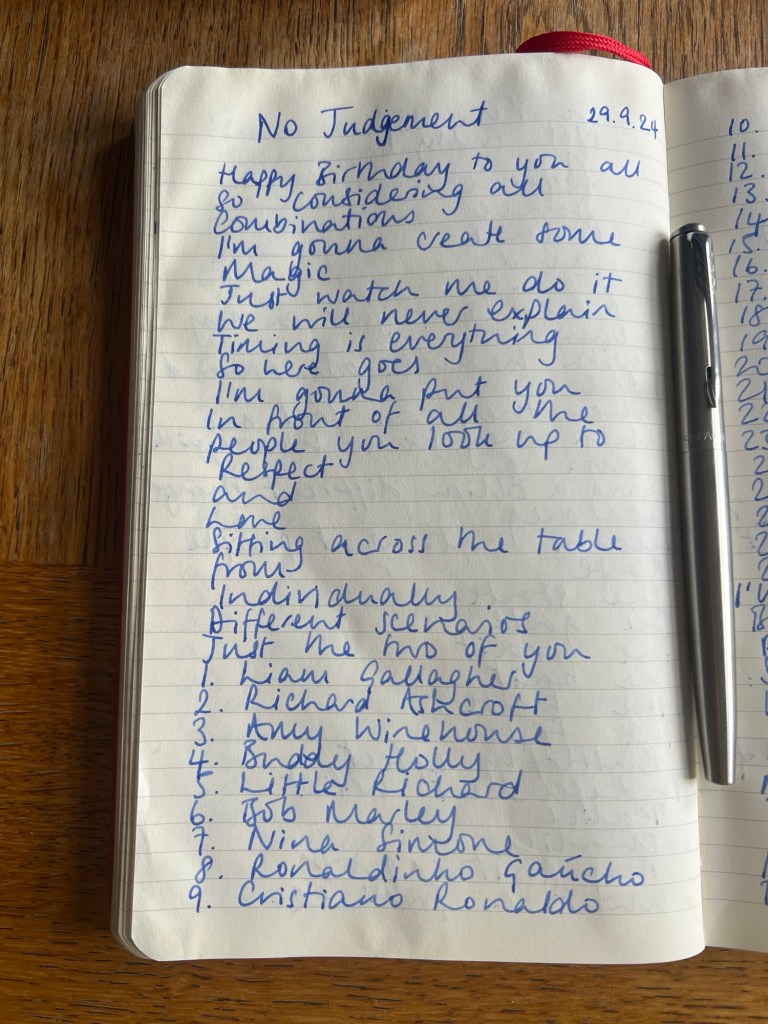 No Judgement 29.9.24
Happy Birthday to you all
So considering all
Combinations
I'm gonna create some
Magic
Just watch me do it
We will never explain
Timing is everything
So here goes
I'm gonna put you
In front of all the
people you look up to
Respect
and
Love
Sitting across the table
from
Individually.
Different scenarios
Just the two of you
1. Liam Gallagher
2. Richard Ashcroft
3. Amy Winehouse
4. Buddy Holly
5. Little Richard
6. Bob Marley
7. Nina Simone
8. Ronaldinho Gaúcho
9. Cristiano Ronaldo
10.
11.
12.
13.
14
15.
16.
17.
18
19
20
21
22
23